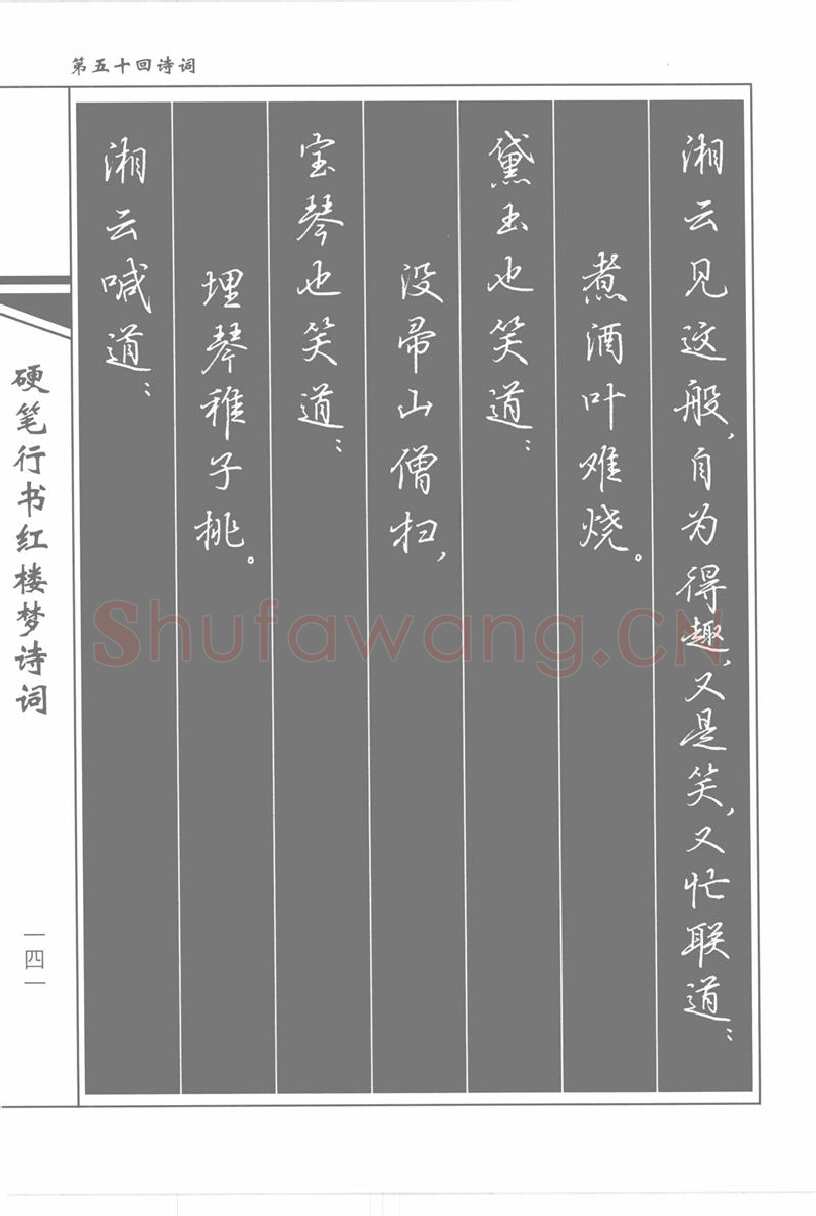 第五十回诗词
湘云见这般,自为得趣,又是笑,又忙联道:
煮酒叶难烧。
黛玉也笑道:
没帚山僧扫,
宝琴也笑道:
埋琴稚子挑。
湘云喊道:
硬笔行书红楼梦诗词
一四一
Shufawang.CN